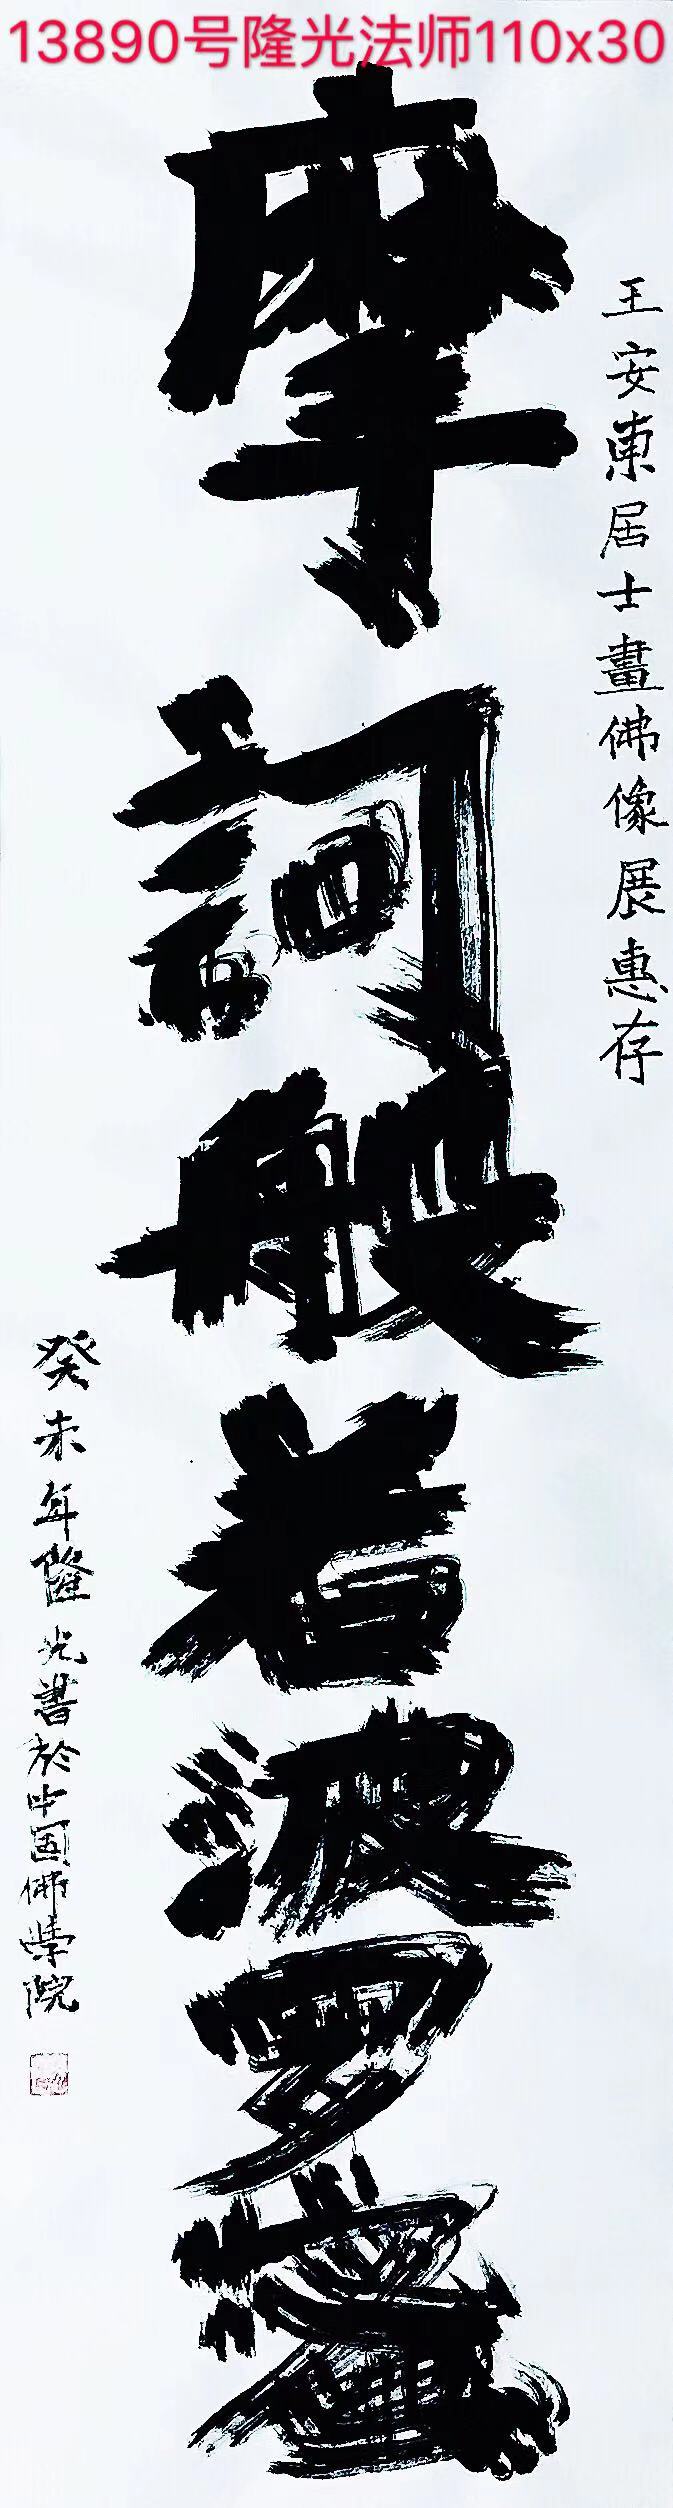 13890号隆光法师110x30
王安東居士畫佛像展惠存
摩訶般若波罗蜜
癸未年隆光書於中国佛學院